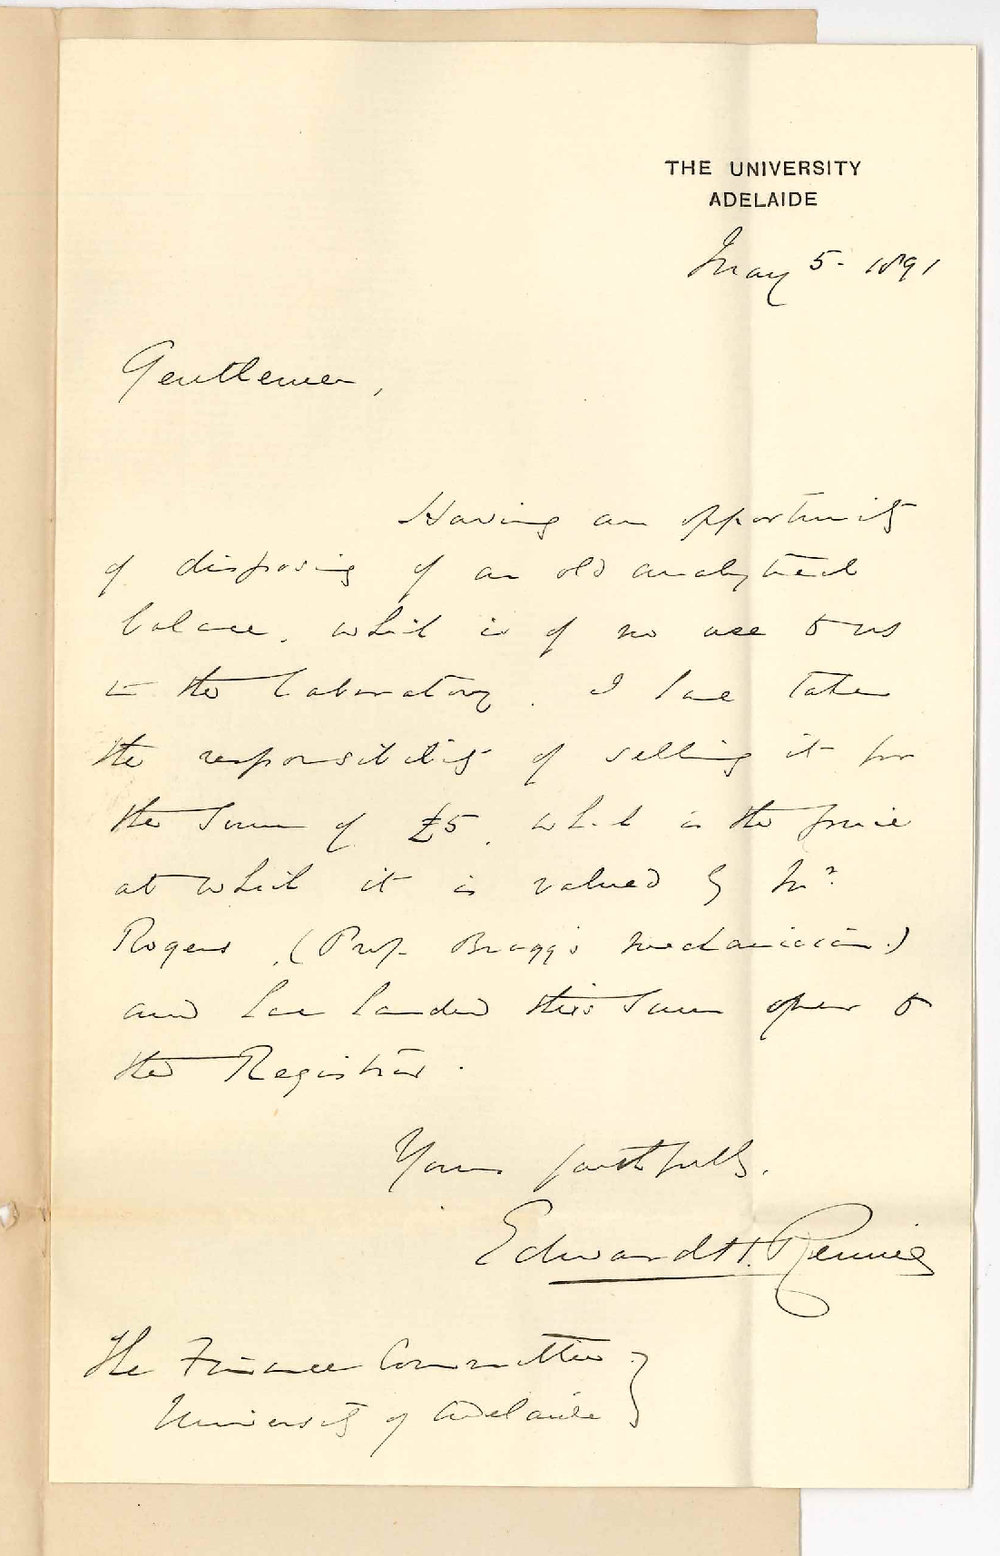 THE UNIVERSITY
ADELAIDE
May 5 - 1891
Gentlemen,
Having an opportunity
of disposing of an old analytical
balance, which is of no use to us
in the laboratory, I have taken
the responsibility of selling it for
the sum of £5, which is the price
at which it is valued by Mr.
Rogers, (Prof. Bragg's mechanician.)
and have handed this sum over to
the Registrar.
Yours faithfully,
Edward H. Rennie
The Finance Committee
University of Adelaide